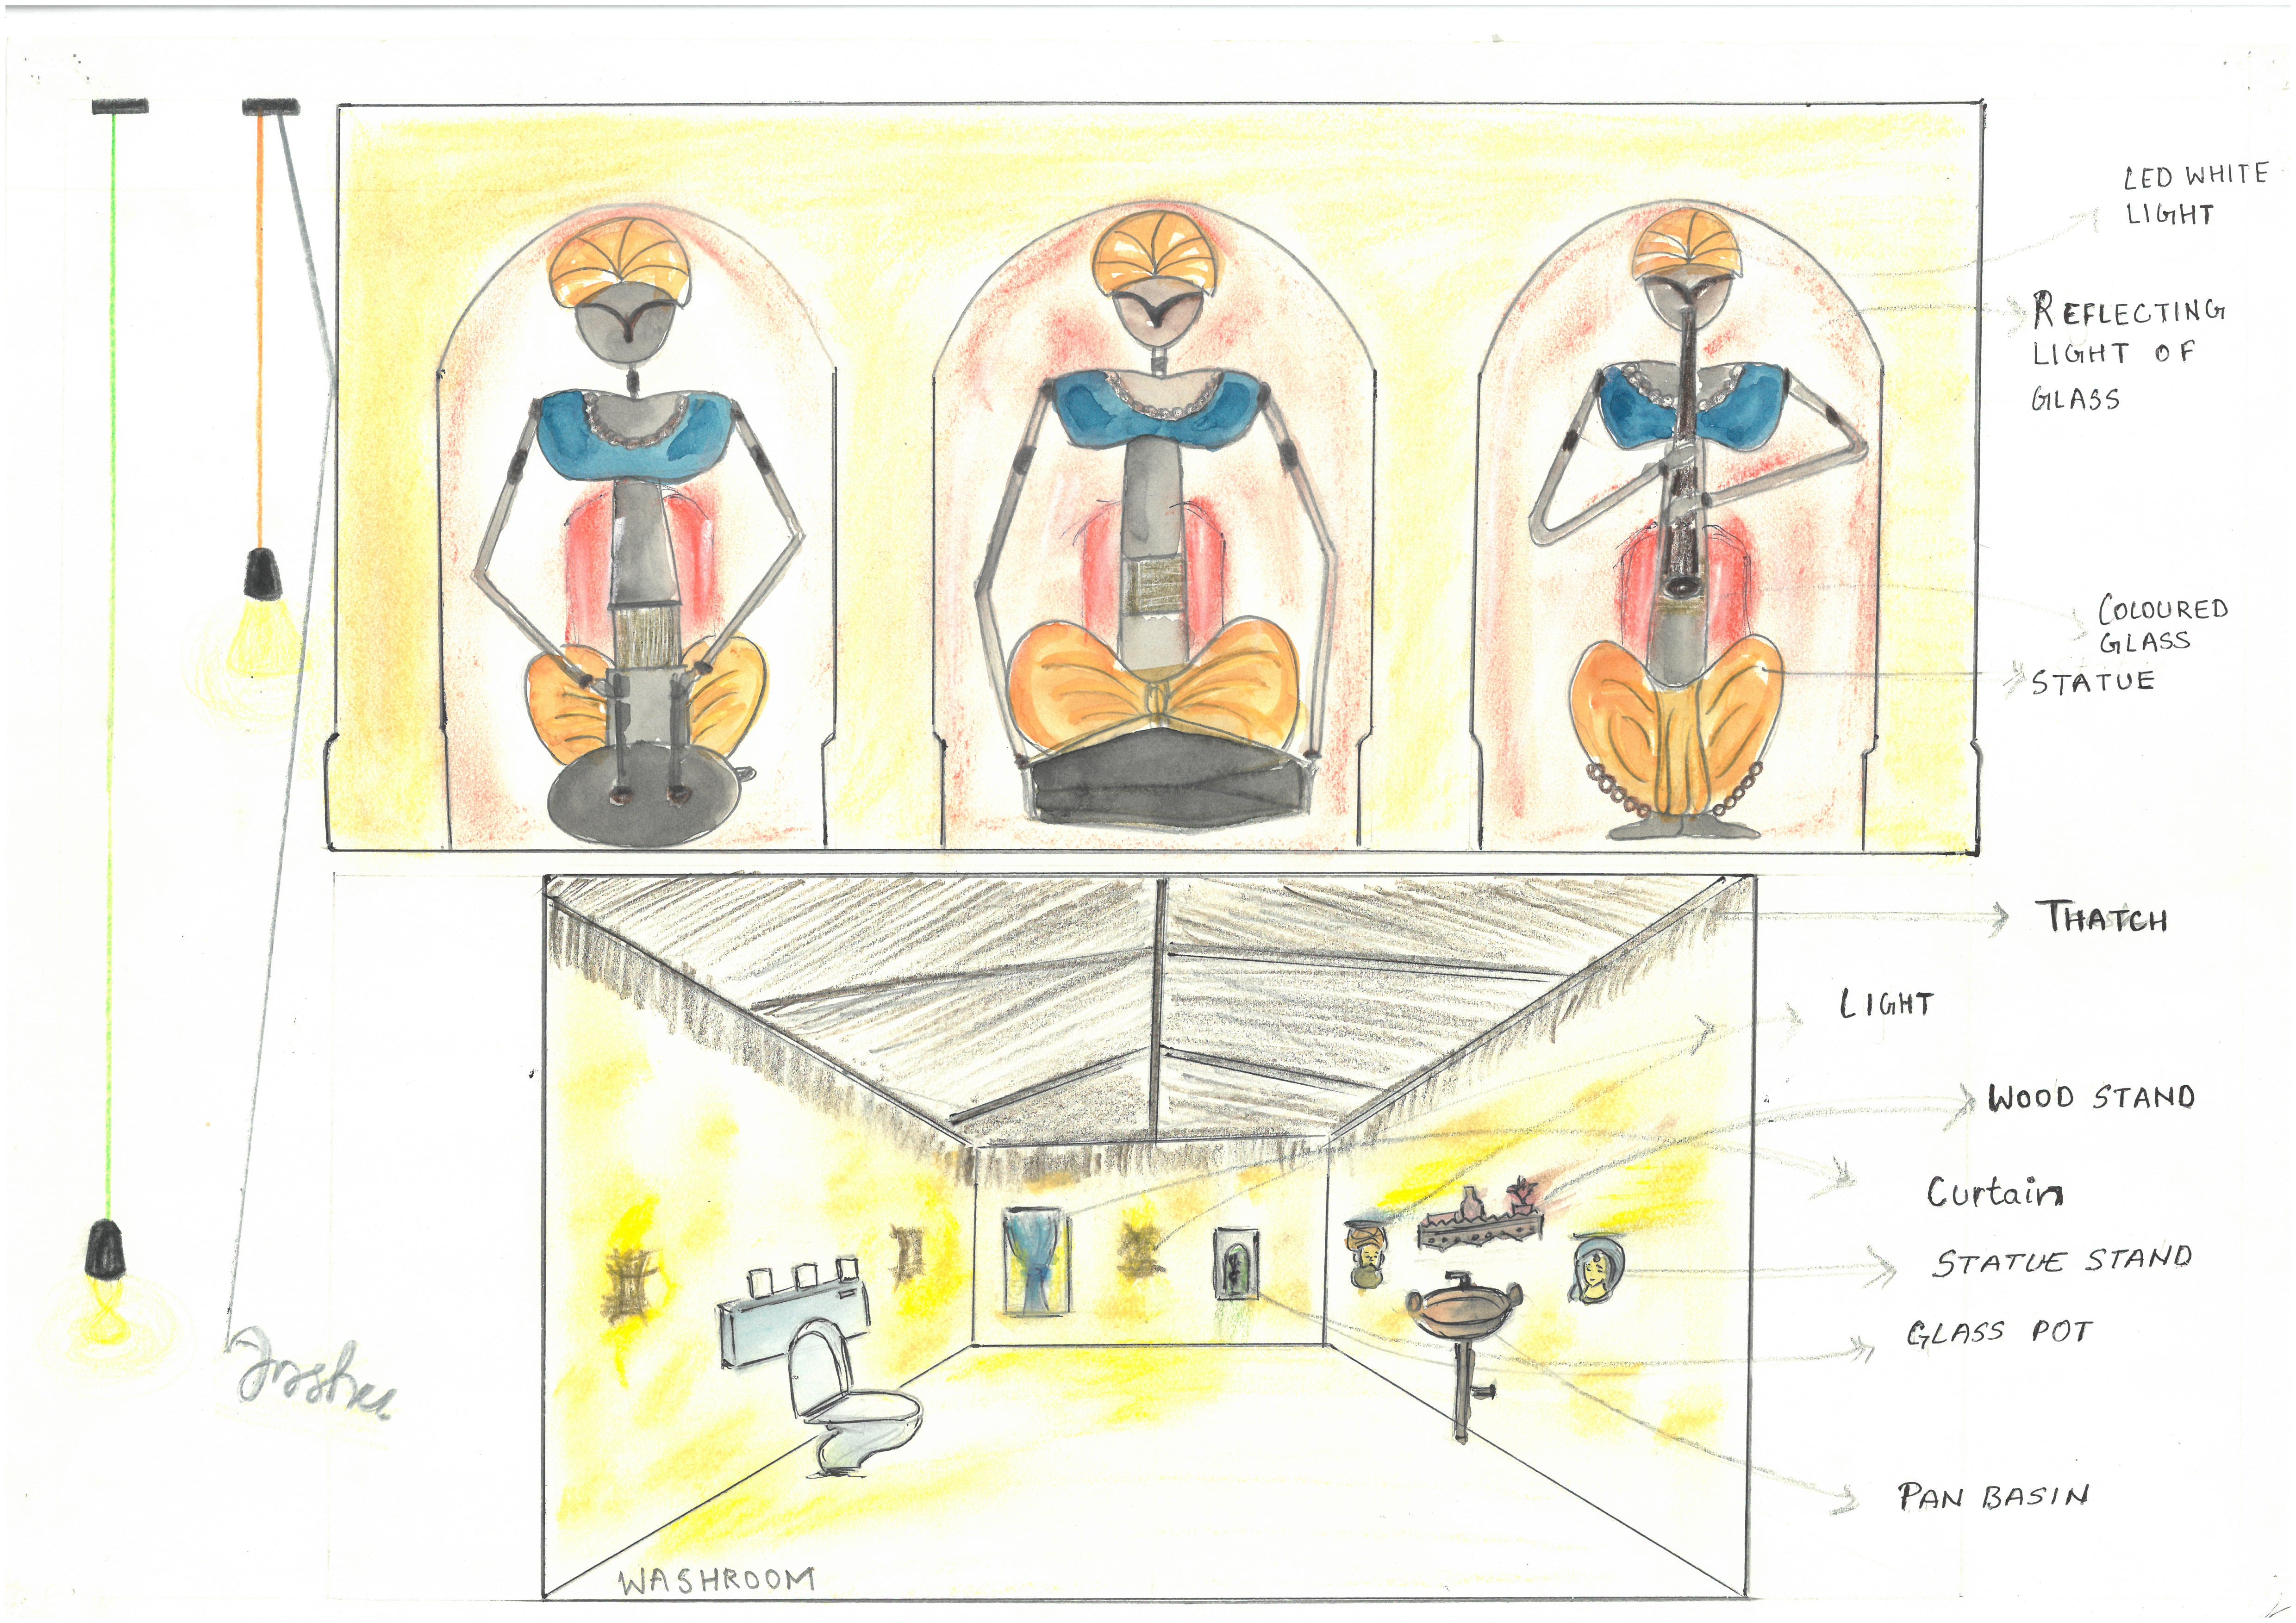 LED WHITE
LIGHT
REFLECTING
LIGHT OF
GLASS
COLOURED
GLASS
STATUE
THATCH
LIGHT
WOOD STAND
Curtain
STATUE STAND
GLASS POT
PAN BASIN
WASHROOM